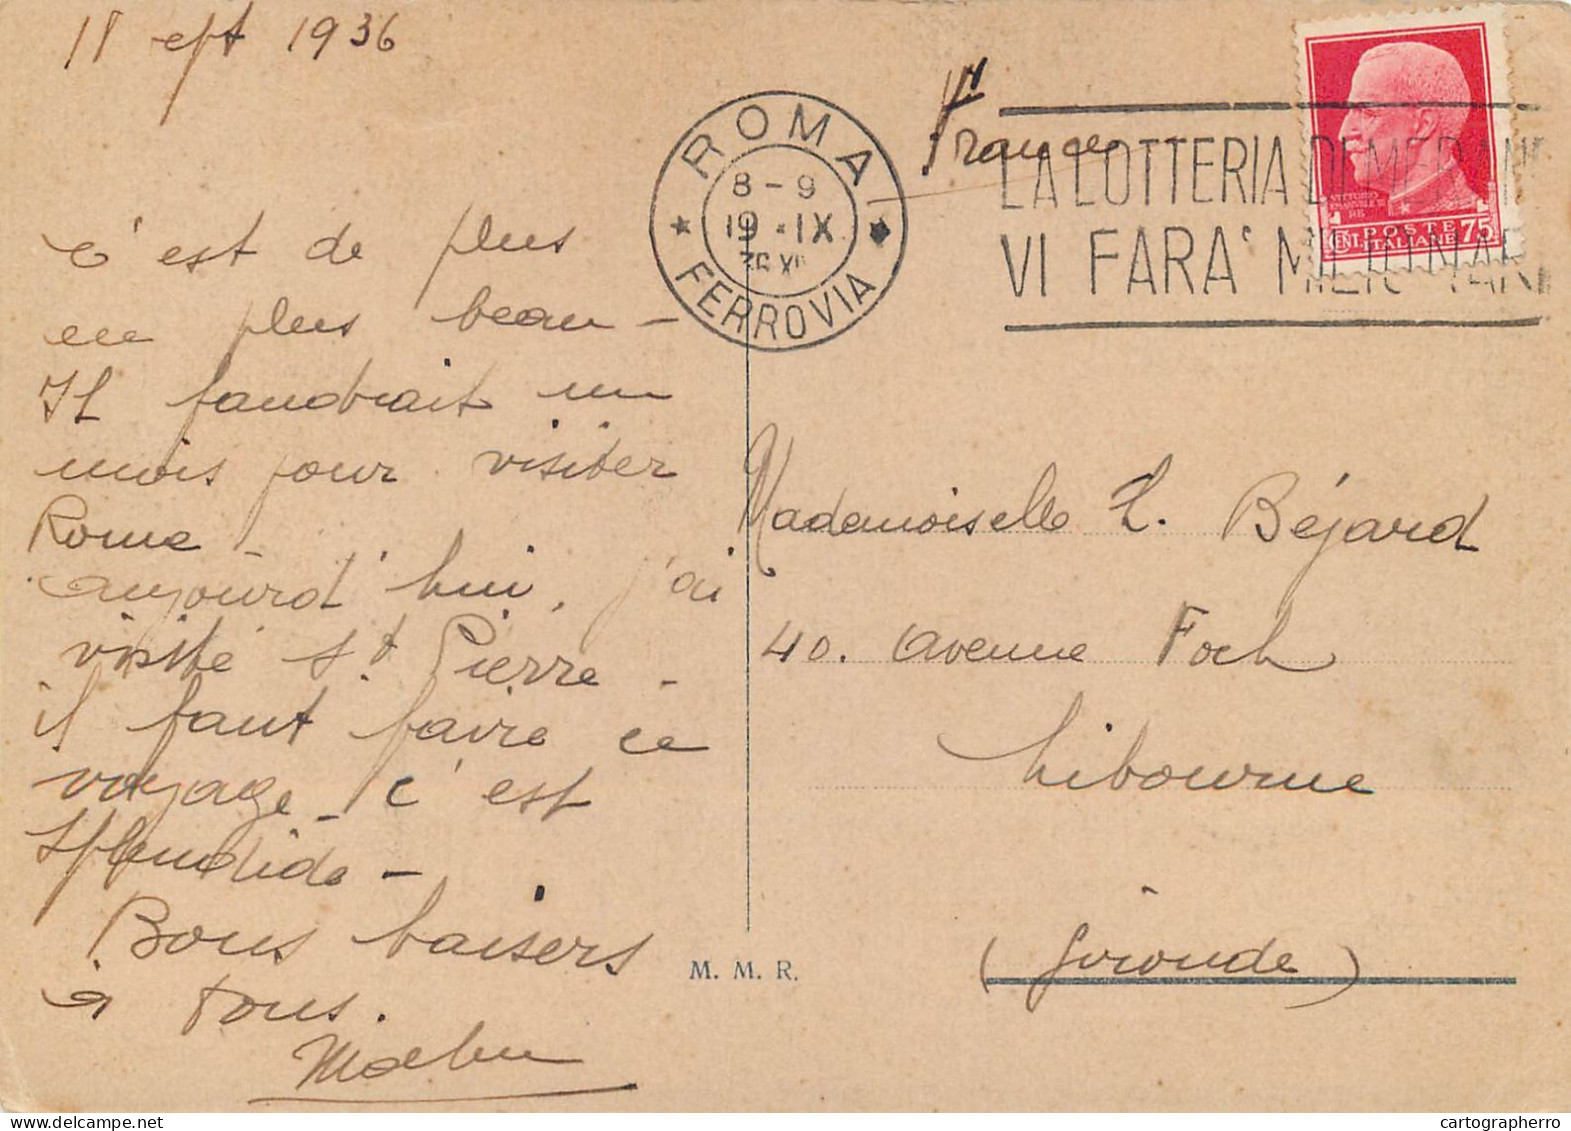 18 sept 1936
c'est de plus
en plus beau -
Il faudrait un
mois pour visiter
Rome -
aujourd'hui, j'ai
visité St. Pierre -
il faut faire ce
voyage - c'est
splendide -
Bons baisers
à tous.
France
ROMA
FERROVIA
8-9
19·IX
LA LOTTERIA DI MERANO
VI FARA' MILIONARI
VITTORIO
EMANUELE III
RE
POSTE
ITALIANE
CENT. 75
Mademoiselle L. Béjard
40. avenue Foch
Libourne
(Gironde)
M. M. R.
cartographerro